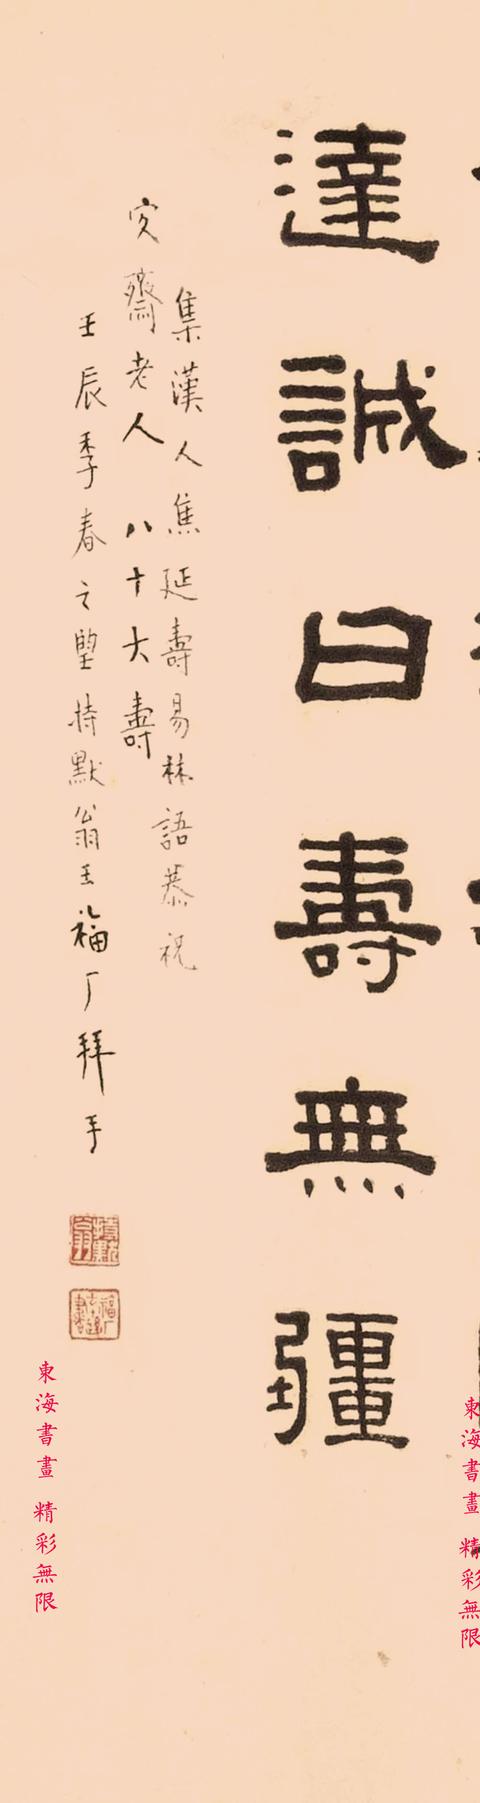 達誠曰壽無疆
集漢人焦延壽易林語恭祝
齋老人 八十大壽
壬辰季春之朢持默翁王福厂拜手
東海書畫 精彩無限
東海書畫 精彩無限